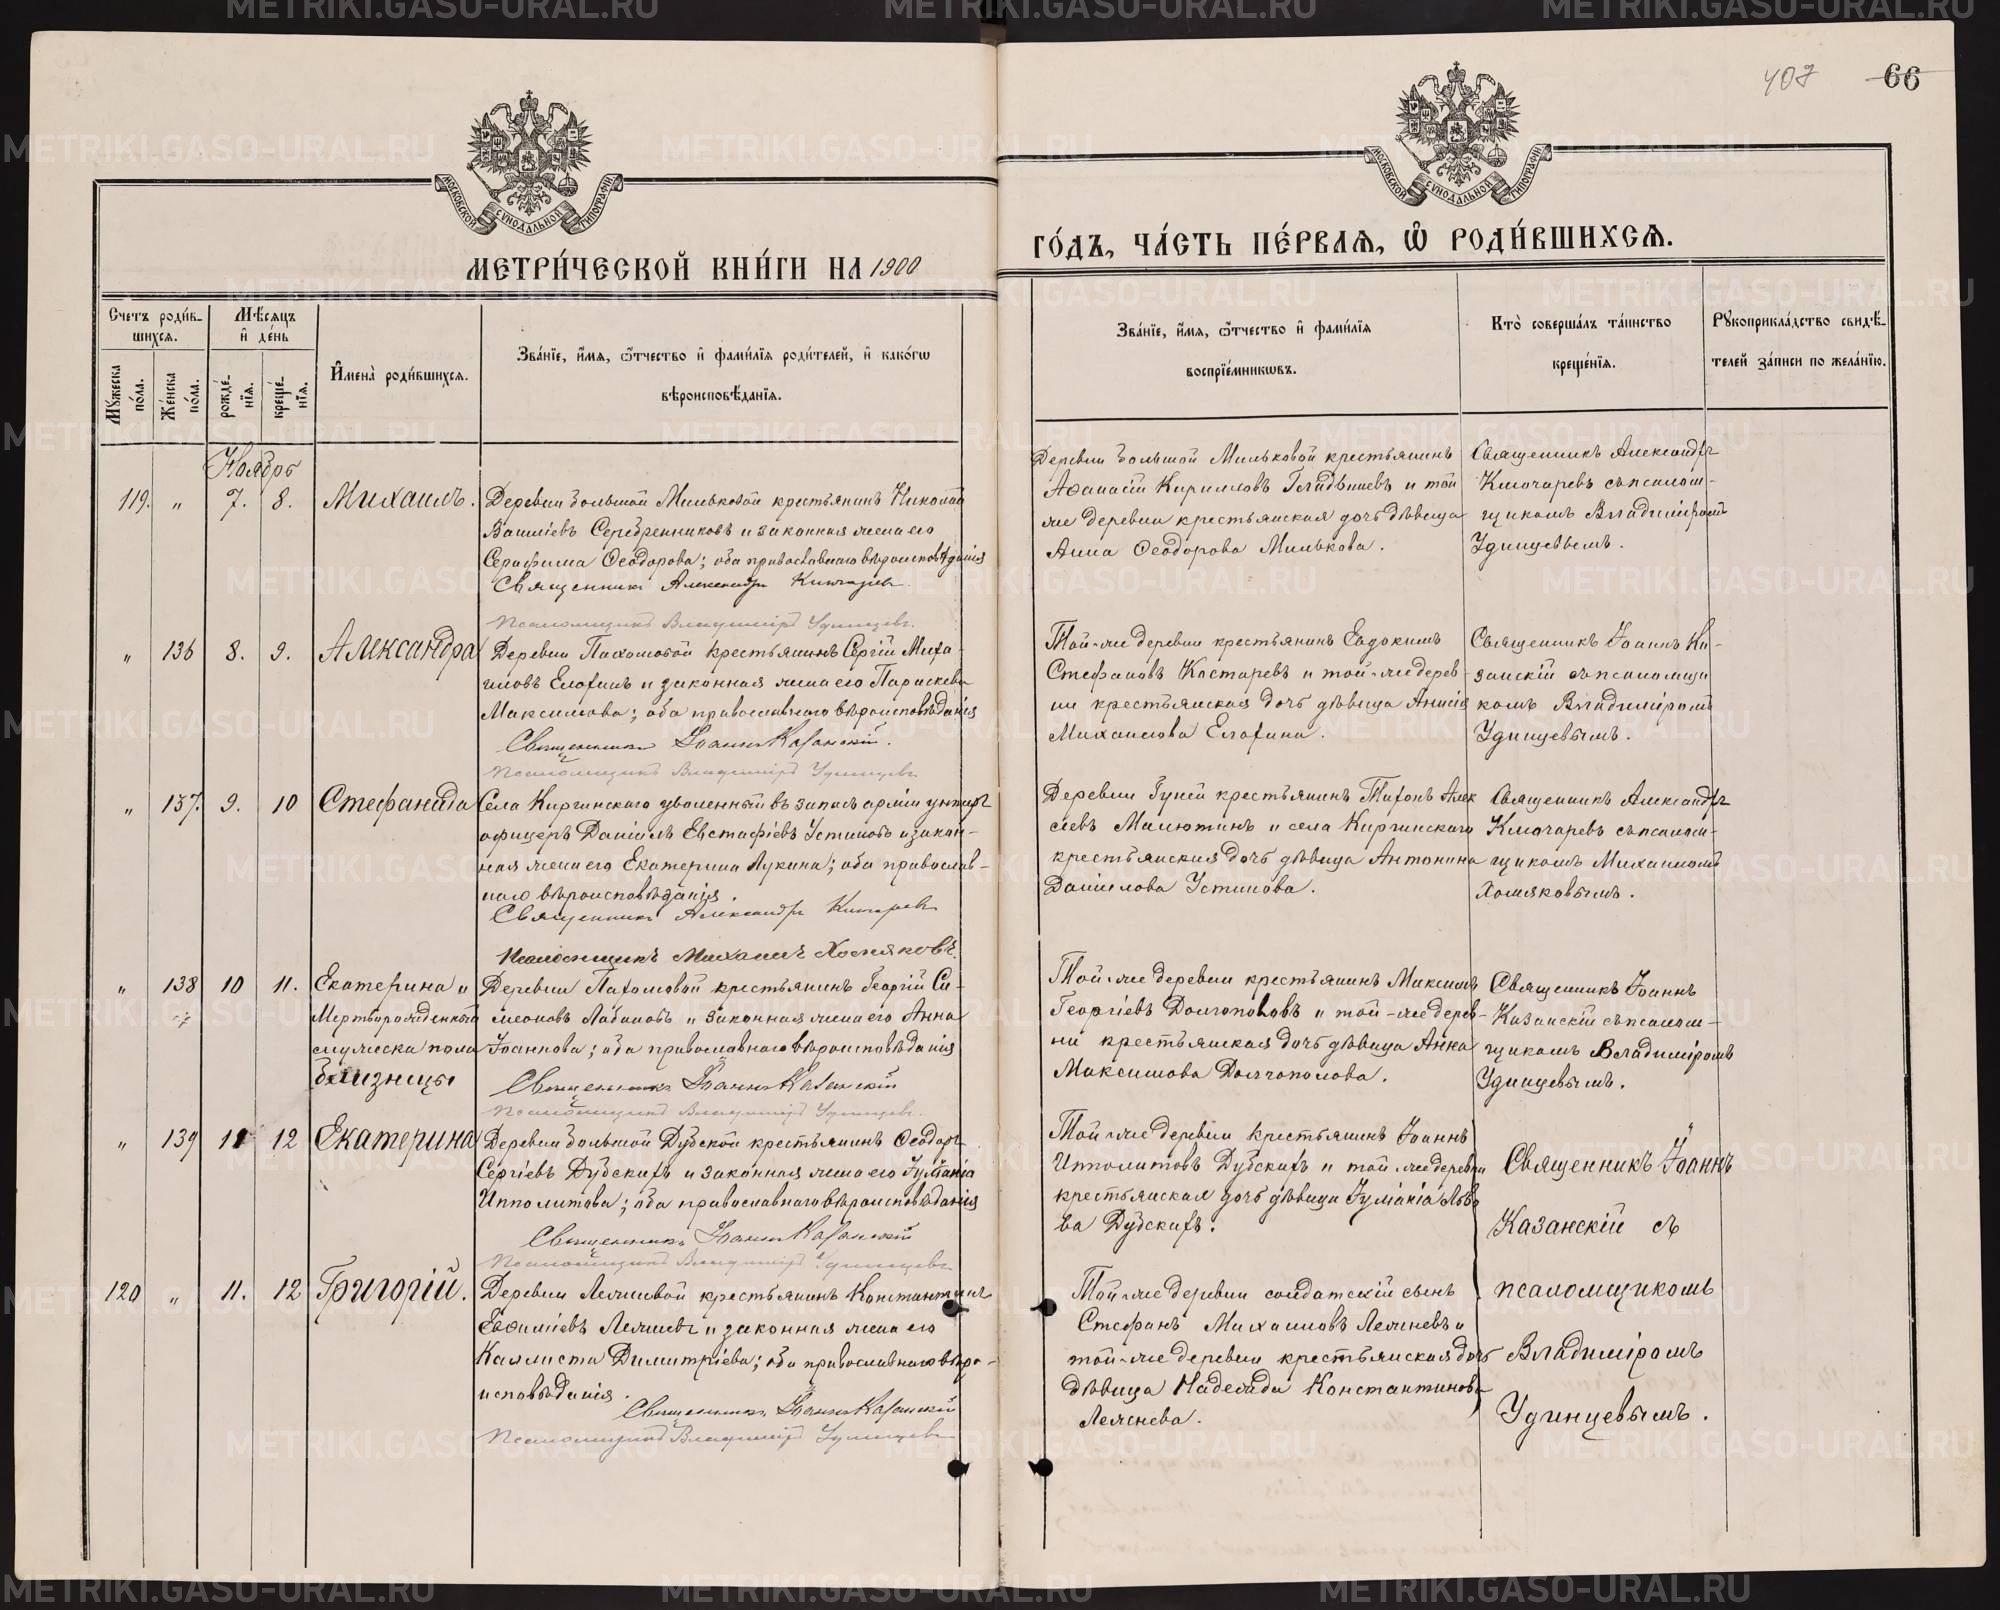 407 66
МОСКОВСКОЙ СУНОДАЛЬНОЙ ТИПОГРАФІИ
МОСКОВСКОЙ СУНОДАЛЬНОЙ ТИПОГРАФІИ
МЕТРИ́ЧЕСКОЙ КНИ́ГИ НА 1900
ГО́ДЪ, ЧА́СТЬ ПЕ́РВАЯ, Ѡ҆ РОДИ́ВШИХСЯ.
Счетъ роди́в-
шихся.
Мꙋжеска по́ла.
Же́нска по́ла.
Мѣ́сяцъ
и҆ де́нь
рожде́нїя.
креще́нїя.
И҆мена̀ роди́вшихся.
Зва́нїе, и҆́мя, ѻ҆́тчество и҆ фами́лїя роди́телей, и҆ како́гѡ
вѣроисповѣ́данїя.
Зва́нїе, и҆́мя, ѻ҆́тчество и҆ фами́лїя
воспрїе́мникѡвъ.
Кто̀ соверша́лъ та́инство
креще́нїя.
Рꙋкоприкла́дство свидѣ́-
телей за́писи по жела́нїю.
Ноябрь
119. „ 7. 8. Михаилъ.
Деревни Большой Мильковой крестьянинъ Николай
Василіевъ Серебренниковъ и законная жена его
Серафима Ѳеодорова; оба православнаго вѣроисповѣданія
Священникъ Александръ Ключаревъ.
Псаломщикъ Владиміръ Удинцевъ.
Деревни Большой Мильковой крестьянинъ
Аѳанасій Кирилловъ Гладышевъ и той
же деревни крестьянская дочь дѣвица
Анна Ѳеодорова Милькова.
Священникъ Александръ
Ключаревъ съ псалом-
щикомъ Владиміромъ
Удинцевымъ.
„ 136 8. 9. Александра
Деревни Пахомовой крестьянинъ Сергій Миха-
иловъ Елохинъ и законная жена его Параскева
Максимова; оба православнаго вѣроисповѣданія
Священникъ Іоаннъ Казанскій.
Псаломщикъ Владиміръ Удинцевъ
Той-же деревни крестьянинъ Евдокимъ
Стефановъ Костаревъ и той-же дерев-
ни крестьянская дочь дѣвица Анисія
Михаилова Елохина.
Священникъ Іоаннъ Ка-
занскій съ псаломщи
комъ Владиміромъ
Удинцевымъ.
„ 137. 9. 10 Стефанида
Села Киргинскаго уволенный въ запасъ арміи унтеръ
офицеръ Даніилъ Евстафіевъ Устиновъ и закон-
ная жена его Екатерина Лукина; оба православ-
наго вѣроисповѣданія.
Священникъ Александръ Ключаревъ
Псаломщикъ Михаилъ Хомяковъ.
Деревни Гуней крестьянинъ Тихонъ Алек
сіевъ Милютинъ и села Киргинскаго
крестьянская дочь дѣвица Антонина
Даніилова Устинова.
Священникъ Александръ
Ключаревъ съ псалом-
щикомъ Михаиломъ
Хомяковымъ.
„ 138 10 11. Екатерина и
Мертворожденный
мужеска пола
близнецы
Деревни Пахомовой крестьянинъ Георгій Си-
меоновъ Лабановъ и законная жена его Анна
Іоаннова; оба православнаго вѣроисповѣданія
Священникъ Іоаннъ Казанскій
Псаломщикъ Владиміръ Удинцевъ.
Той-же деревни крестьянинъ Максимъ
Георгіевъ Долгополовъ и той-же дерев-
ни крестьянская дочь дѣвица Анна
Максимова Долгополова.
Священникъ Іоаннъ
Казанскій съ псалом-
щикомъ Владиміромъ
Удинцевымъ.
„ 139 11 12 Екатерина
Деревни Большой Дубской крестьянинъ Ѳеодоръ
Сергіевъ Дубскихъ и законная жена его Іуліанія
Ипполитова; оба православнаго вѣроисповѣданія
Священникъ Іоаннъ Казанскій
Псаломщикъ Владиміръ Удинцевъ
Той-же деревни крестьянинъ Іоаннъ
Ипполитовъ Дубскихъ и той же деревни
крестьянская дочь дѣвица Іуліанія Льво
ва Дубскихъ.
Священникъ Іоаннъ
Казанскій съ
псаломщикомъ
Владиміромъ
Удинцевымъ.
120 „ 11. 12 Григорій.
Деревни Лежневой крестьянинъ Константинъ
Евѳиміевъ Лежневъ и законная жена его
Каллиста Димитріева; оба православнаго вѣро-
исповѣданія.
Священникъ Іоаннъ Казанскій
Псаломщикъ Владиміръ Удинцевъ
Той-же деревни солдатскій сынъ
Стефанъ Михаиловъ Лежневъ и
той-же деревни крестьянская дочь
дѣвица Надежда Константинова
Лежнева.
METRIKI.GASO-URAL.RU